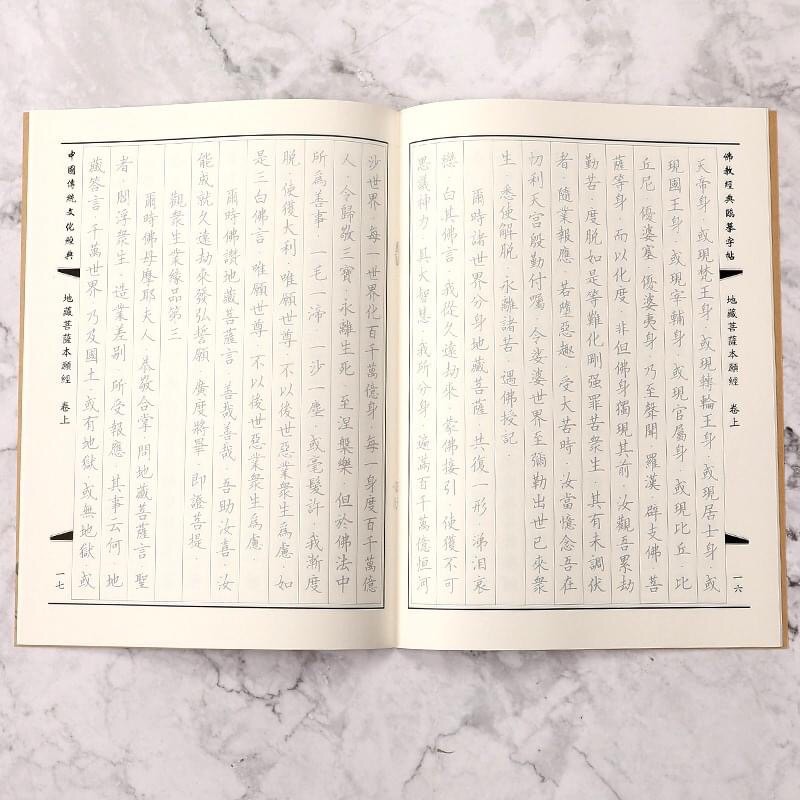 佛教經典臨摹字帖
地藏菩薩本願經 卷上
一六
天帝身·或現梵王身·或現轉輪王身·或現居士身·或
現國王身·或現宰輔身·或現官屬身·或現比丘·比
丘尼·優婆塞·優婆夷身·乃至聲聞·羅漢·辟支佛·菩
薩等身·而以化度·非但佛身獨現其前·汝觀吾累劫
勤苦·度脫如是等難化剛强罪苦衆生·其有未調伏
者·隨業報應·若墮惡趣·受大苦時·汝當憶念吾在
忉利天宮殷勤付囑·令娑婆世界至彌勒出世已來衆
生·悉使解脫·永離諸苦·遇佛授記·
爾時諸世界分身地藏菩薩·共復一形·涕淚哀
戀·白其佛言·我從久遠劫來·蒙佛接引·使獲不可
思議神力·具大智慧·我所分身·遍滿百千萬億恒河
沙世界·每一世界化百千萬億身·每一身度百千萬億
人·令歸敬三寶·永離生死·至涅槃樂·但於佛法中
所爲善事·一毛一渧·一沙一塵·或毫髮許·我漸度
脫·使獲大利·唯願世尊·不以後世惡業衆生爲慮·如
是三白佛言·唯願世尊·不以後世惡業衆生爲慮·
爾時佛讚地藏菩薩言·善哉善哉·吾助汝喜·汝
能成就久遠劫來發弘誓願·廣度將畢·即證菩提·
觀衆生業緣品第三
爾時佛母摩耶夫人·恭敬合掌·問地藏菩薩言·聖
者·閻浮衆生·造業差別·所受報應·其事云何·地
藏答言·千萬世界·乃及國土·或有地獄·或無地獄·或
中國傳統文化經典
地藏菩薩本願經 卷上
一七